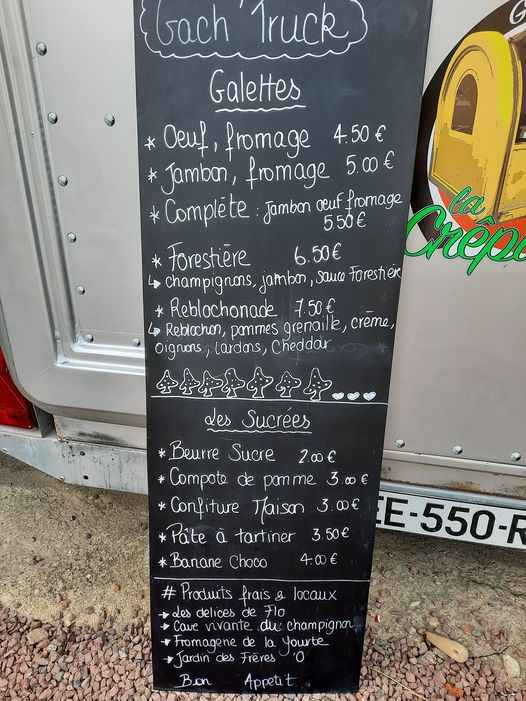 Gach'Truck
Galettes
* Oeuf, fromage 4.50 €
* Jambon, fromage 5.00 €
* Complète : Jambon œuf fromage
5.50 €
* Forestière 6.50 €
↳ champignons, jambon, sauce Forestière
* Reblochonade 7.50 €
↳ Reblochon, pommes grenaille, crème,
oignons, lardons, Cheddar
Les Sucrées
* Beurre Sucre 2.00 €
* Compote de pomme 3.00 €
* Confiture Maison 3.00 €
* Pâte à tartiner 3.50 €
* Banane Choco 4.00 €
# Produits frais & locaux
→ Les délices de Flo
→ Cave vivante du champignon
→ Fromagerie de la Yourte
→ Jardin des Frères 'O
Bon Appetit
G
la
Crêp
EE-550-R